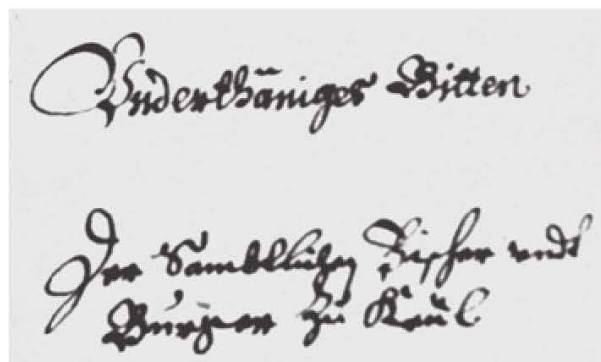 Underthäniges Bitten
Der Sambtlichen Fischer undt
Burger zu Kaül